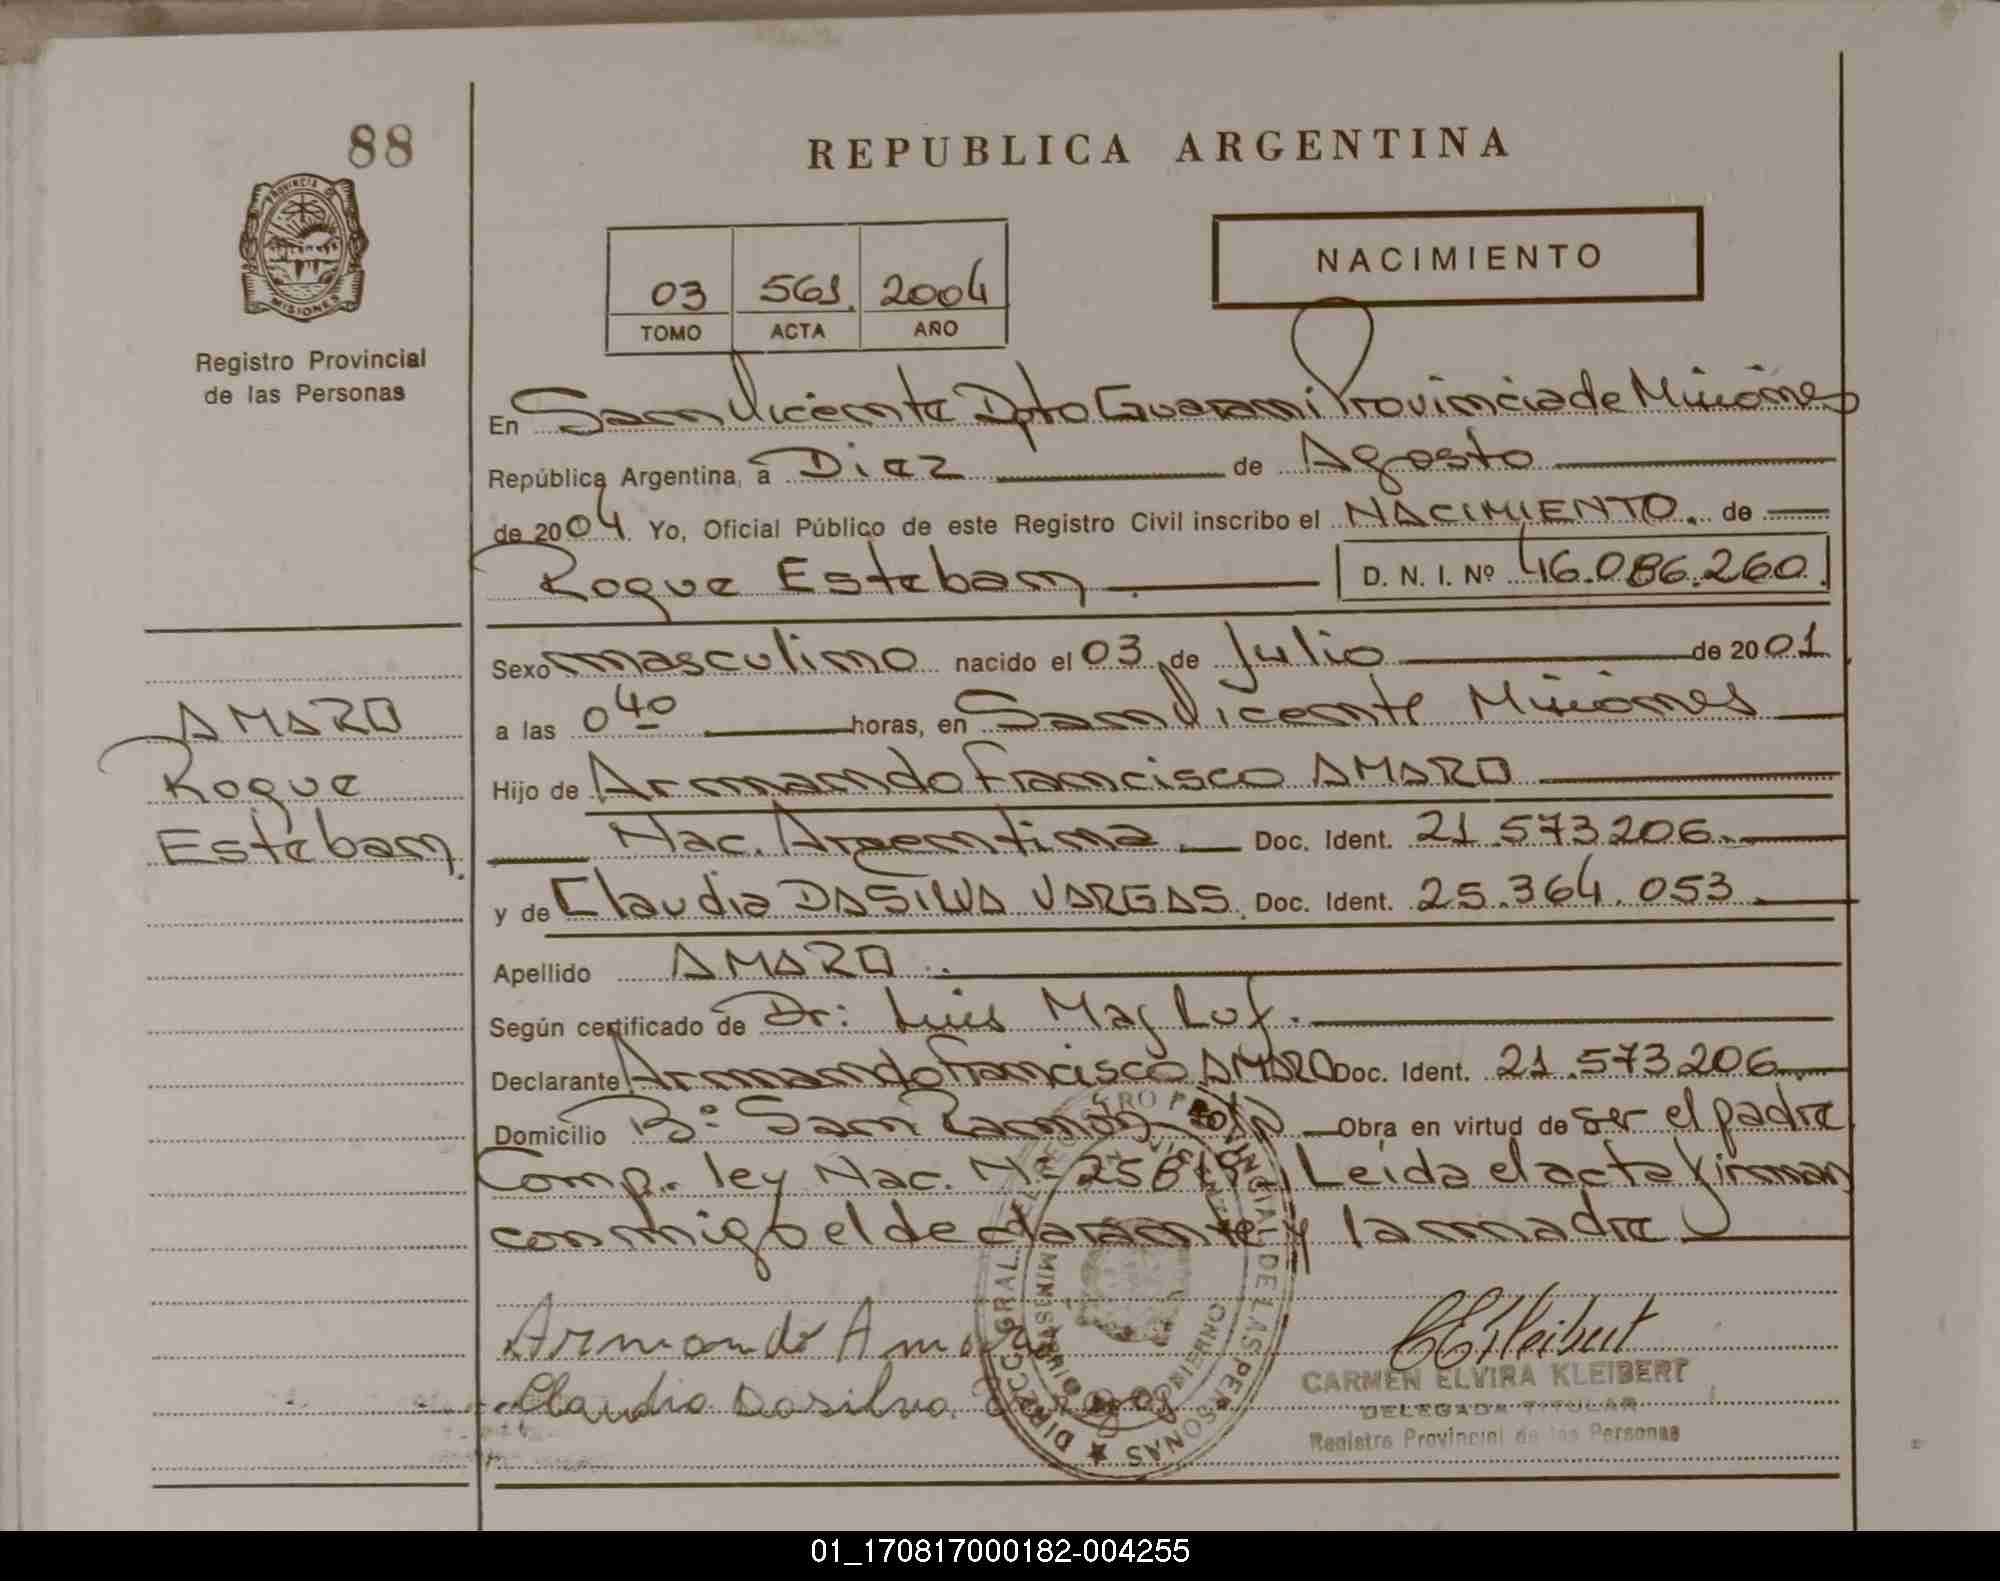 88
PROVINCIA DE
MISIONES
Registro Provincial
de las Personas
REPUBLICA ARGENTINA
03 561. 2004
TOMO ACTA AÑO
NACIMIENTO
En San Vicente Dpto Guarani Provincia de Misiones
República Argentina, a Diez de Agosto
de 2004. Yo, Oficial Público de este Registro Civil inscribo el NACIMIENTO. de
Roque Esteban D. N. I. Nº 46.086.260
Sexo masculino nacido el 03 de Julio de 2001
a las 0 40 horas, en San Vicente Misiones
Hijo de Armando Francisco AMARO
Nac. Argentina Doc. Ident. 21.573.206
y de Claudia DASILVA VARGAS. Doc. Ident. 25.364.053
Apellido AMARO
Según certificado de Dr: Luis
Declarante Armando Francisco AMARO Doc. Ident. 21.573.206
Domicilio Bº San Ramon Obra en virtud de ser el padre
Comp. ley Nac. Nº Leida el acta firman
conmigo el declarante y la madre
AMARO
Roque
Esteban
Armando Amaro
Claudia Dasilva
CARMEN ELVIRA KLEIBERT
DELEGADA TITULAR
Registro Provincial de las Personas
01_170817000182-004255